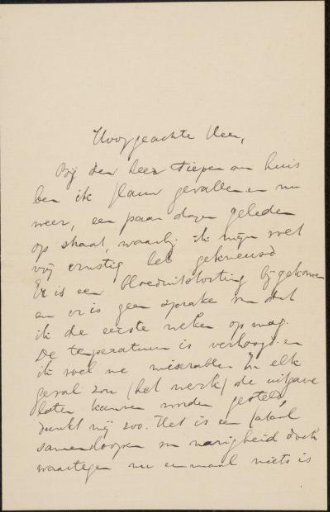 Hooggeachte Heer,
Bij den heer Diepen aan huis
ben ik flauw gevallen en nu
weer, een paar dagen geleden
op straat, waarbij ik mijn voet
vrij ernstig heb gekneusd
Er is een bloeduitstorting bijgekomen
en er is geen sprake van dat
ik de eerste weken op mag.
De temperatuur is verhoogd en
ik voel me miserabel. In elk
geval zou (het werk) de uitgave
kunnen worden gesteld
dunkt mij zoo. Het is een fataal
samenloopen van narigheid doch
waartegen nu eenmaal niets is